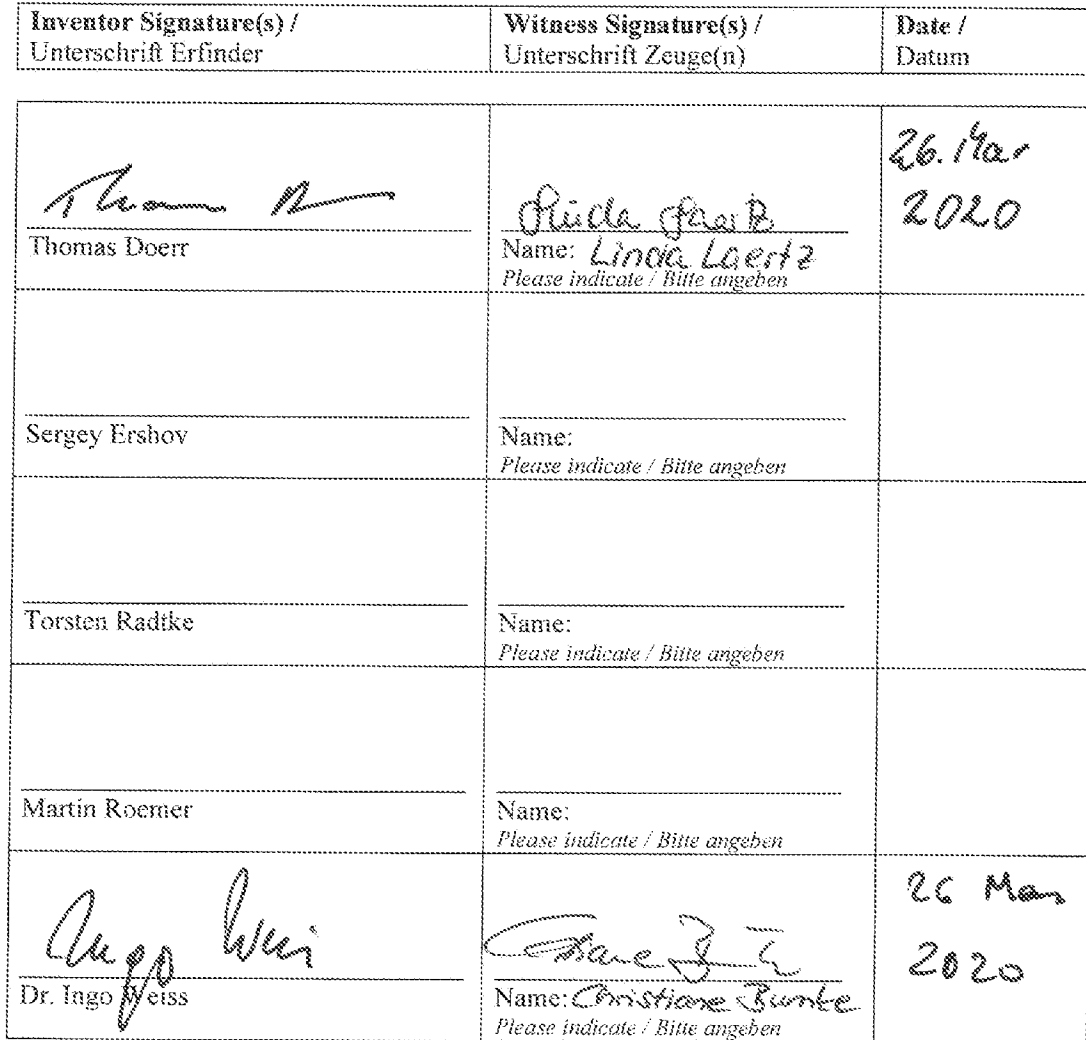 Inventor Signature(s) /
Unterschrift Erfinder
Witness Signature(s) /
Unterschrift Zeuge(n)
Date /
Datum
Thomas Doerr
Linda Laertz
Name: Linda Laertz
Please indicate / Bitte angeben
26. Mar
2020
Sergey Ershov
Name:
Please indicate / Bitte angeben
Torsten Radtke
Name:
Please indicate / Bitte angeben
Martin Roemer
Name:
Please indicate / Bitte angeben
Ingo Weiss
Dr. Ingo Weiss
Name: Christiane Bunke
Please indicate / Bitte angeben
26 Mar
2020